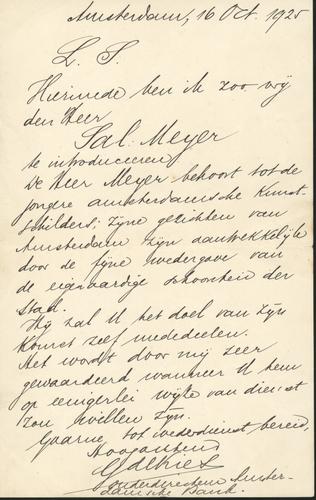 Amsterdam, 16 Oct. 1925
L. S.
Hiermede ben ik zoo vrij
den Heer
Sal. Meyer
te introduceeren.
De Heer Meyer behoort tot de
jongere amsterdamsche Kunst-
schilders; zijne gezichten van
Amsterdam zijn aantrekkelijk
door de fijne wedergave van
de eigenaardige schoonheid der
stad.
Hij zal U het doel van zijn
komst zelf mededeelen.
Het wordt door mij zeer
gewaardeerd wanneer U hem
op eenigerlei wijze van dienst
zou willen zijn.
Gaarne tot wederdienst bereid,
Hoogachtend
Onderdirecteur Amster-
damsche Bank.